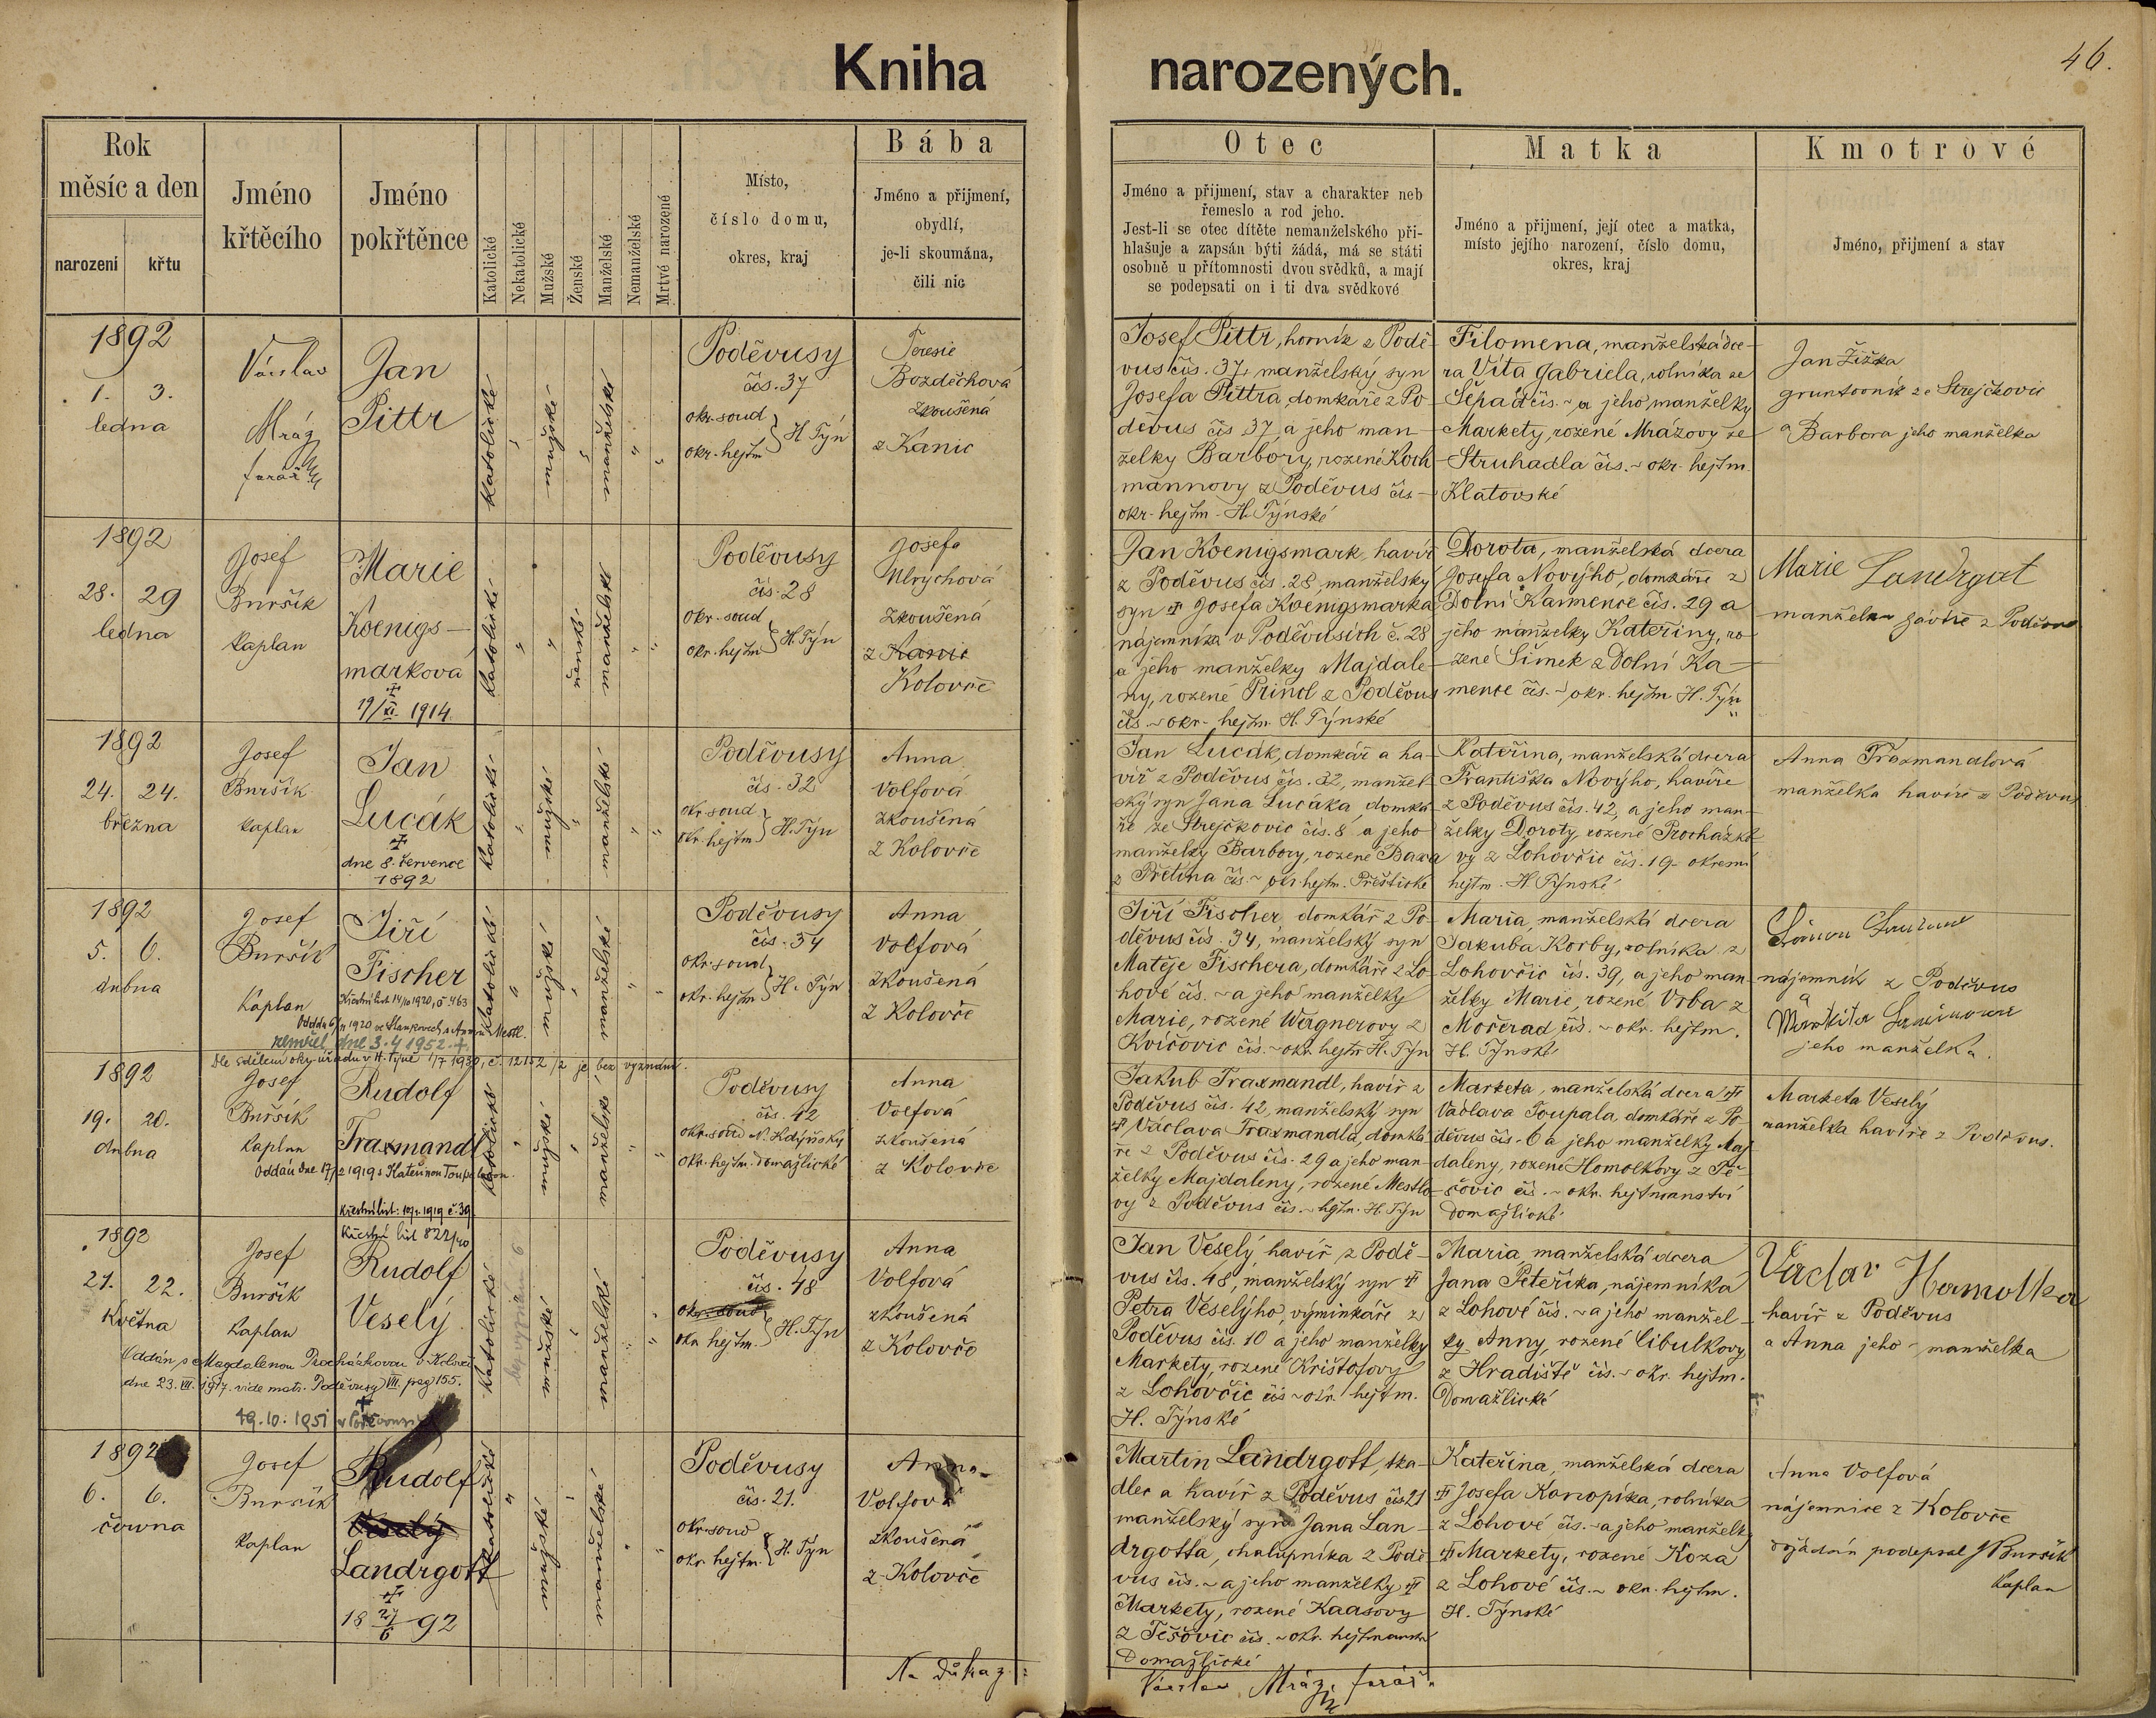 Kniha narozených.
46.
Rok
měsíc a den
narození křtu
Jméno
křtěcího
Jméno
pokřtěnce
Katolické
Nekatolické
Mužské
Ženské
Manželské
Nemanželské
Mrtvé narozené
Místo,
číslo domu,
okres, kraj
Bába
Jméno a přijmení,
obydlí,
je-li skoumána,
čili nic
Otec
Jméno a přijmení, stav a charakter neb
řemeslo a rod jeho.
Jest-li se otec dítěte nemanželského při-
hlašuje a zapsán býti žádá, má se státi
osobně u přítomnosti dvou svědků, a mají
se podepsati on i ti dva svědkové
Matka
Jméno a přijmení, její otec a matka,
místo jejího narození, číslo domu,
okres, kraj
Kmotrové
Jméno, přijmení a stav
1892
1. 3.
ledna
Václav
Mráz
farář
Jan
Pittr
katolické
mužské
manželské
Poděvusy
čís. 37
okr. soud
okr. hejtm. } H Týn
Teresie
Bozděchová
zkoušená
z Kanic
Josef Pittr, horník z Podě-
vus čís. 37, manželský syn
Josefa Pittra, domkáře z Po-
děvus čís 37, a jeho man-
želky Barbory, rozené Koch-
mannovy z Poděvus čís -
okr. hejtm. H. Týnské
Filomena, manželská dce-
ra Víta Gabriela, rolníka ze
Sepad čís. ~ a jeho manželky
Markety, rozené Mrázovy ze
Struhadla čís. ~ okr. hejtm.
Klatovské
Jan Žižka
gruntovník ze Strejčkovic
a Barbora jeho manželka
1892
28. 29
ledna
Josef
Buršík
kaplan
Marie
Koenigs-
marková
✝
19/XI. 1914.
katolické
ženské
manželské
Poděvusy
čís. 28
okr. soud
okr. hejtm. } H. Týn
Josefa
Ulrychová
zkoušená
z Kanic
Kolovče
Jan Koenigsmark, havíř
z Poděvus čís. 28, manželský
syn ✝ Josefa Koenigsmarka
nájemníka v Poděvusích č. 28
a jeho manželky Majdale-
ny, rozené Princl z Poděvus
čís. ~ okr. hejtm. H. Týnské
Dorota, manželská dcera
Josefa Novýho, domkáře z
Dolní Kamence čís. 29 a
jeho manželky Kateřiny, ro-
zené Šimek z Dolní Ka-
mence čís. ~ okr. hejtm H. Týn
Marie Landrgot
manželka havíře z Poděvus
1892
24. 24.
března
Josef
Buršík
kaplan
Jan
Lucák
✝
dne 8. července
1892
katolické
mužské
manželské
Poděvusy
čís. 32
okr. soud
okr. hejtm. } H. Týn
Anna
Volfová
zkoušená
z Kolovče
Jan Lucák, domkář a ha-
víř z Poděvus čís. 32, manžel-
ský syn Jana Lucáka, domká-
ře ze Strejčkovic čís. 8 a jeho
manželky Barbory, rozené Baxa
z Přetína čís. ~ okr. hejtm. Přeštické
Kateřina, manželská dcera
Františka Novýho, havíře
z Poděvus čís. 42, a jeho man-
želky Doroty, rozené Procházko-
vy z Lohovčic čís. 19. okresní
hejtm. H Týnské
Anna Traxmandlová
manželka havíře z Poděvus
1892
5. 6.
dubna
Josef
Buršík
Kaplan
Jiří
Fischer
Křestní list 14/10 1920, č. 463
zemřel dne 3.4 1952. ✝
katolické
mužské
manželské
Poděvusy
čís. 34
okr. soud
okr. hejtm. } H. Týn
Anna
Volfová
zkoušená
z Kolovče
Jiří Fischer, domkář z Po-
děvus čís. 34, manželský syn
Matěje Fischera, domkáře z Lo-
hové čís. ~ a jeho manželky
Marie, rozené Wagnerovy z
Kvíčovic čís. ~ okr. hejtm H. Týn
Maria, manželská dcera
Jakuba Korby, rolníka z
Lohovčic čís. 39, a jeho man-
želky Marie, rozené Vrba z
Močerad čís. ~ okr. hejtm.
H. Týnské
nájemník z Poděvus
a
jeho manželka.
Dle sdělení okr. úřadu v H. Týně 1/7 1930, č. 12152/2 je bez vyznání.
1892
19. 20.
dubna
Josef
Buršík
kaplan
Rudolf
Traxmandl
Oddán dne 17/2 1919 s Kateřinou Toupalovou.
Křestní list: 1919 č. 39
katolické
mužské
manželské
Poděvusy
čís. 42
okr. soud N. Kdýňský
okr. hejtm. Domažlické
Anna
Volfová
zkoušená
z Kolovče
Jakub Traxmandl, havíř z
Poděvus čís. 42, manželský syn
✝ Václava Traxmandla, domká-
ře z Poděvus čís. 29 a jeho man-
želky Majdaleny, rozené Mestlo-
vy z Poděvus čís. ~ hejtm. H. Týn
Marketa, manželská dcera ✝
Václava Toupala, domkáře z Po-
děvus čís. 6 a jeho manželky Maj-
daleny, rozené Homolkovy z Tě-
šovic čís. ~ okr. hejtmanství
Domažlické
Marketa Veselý
manželka havíře z Poděvus.
1892
21. 22.
Května
Josef
Buršík
Kaplan
Křestní list 822/40
Rudolf
Veselý
Oddán s Magdalenou Procházkovou v Kolovči
dne 23. VII. 1917. vide matr. Poděvusy VII. pag 155.
✝
19. 10. 1951
katolické
bez vyznání
mužské
manželské
Poděvusy
čís. 48
okr. soud
okr hejtm. } H. Týn
Anna
Volfová
zkoušená
z Kolovče
Jan Veselý havíř z Podě-
vus čís. 48, manželský syn ✝
Petra Veselýho, výminkáře z
Poděvus čís. 10 a jeho manželky
Markety, rozené Krištofovy
z Lohovčic čís ~ okr. hejtm.
H. Týnské
Maria, manželská dcera
Jana Peteříka, nájemníka
z Lohové čís. ~ a jeho manžel-
ky Anny, rozené Cibulkovy
z Hradiště čís. ~ okr. hejtm.
Domažlické
Václav Homolka
havíř z Poděvus
a Anna jeho manželka
1892
6. 6.
června
Josef
Buršík
kaplan
Rudolf
Veselý
Landrgott
✝
18 27/6 92
katolické
mužské
manželské
Poděvusy
čís. 21.
okr. soud
okr. hejtm. } H. Týn
Anna
Volfová
zkoušená
z Kolovče
Martin Landrgott, tka-
dlec a havíř z Poděvus čís 21
manželský syn Jana Lan-
drgotta, chalupníka z Podě-
vus čís. ~ a jeho manželky ✝
Markety, rozené Kaasovy
z Těšovic čís. ~ okr. hejtmanství
Domažlické
Kateřina, manželská dcera
✝ Josefa Konopíka, rolníka
z Lohové čís. ~ a jeho manželky
✝ Markety, rozené Koza
z Lohové čís. ~ okr. hejtm.
H. Týnské
Anna Volfová
nájemnice z Kolovče
dožádán podepsal J Buršík
kaplan
Na důkaz:
Václav Mráz, farář.